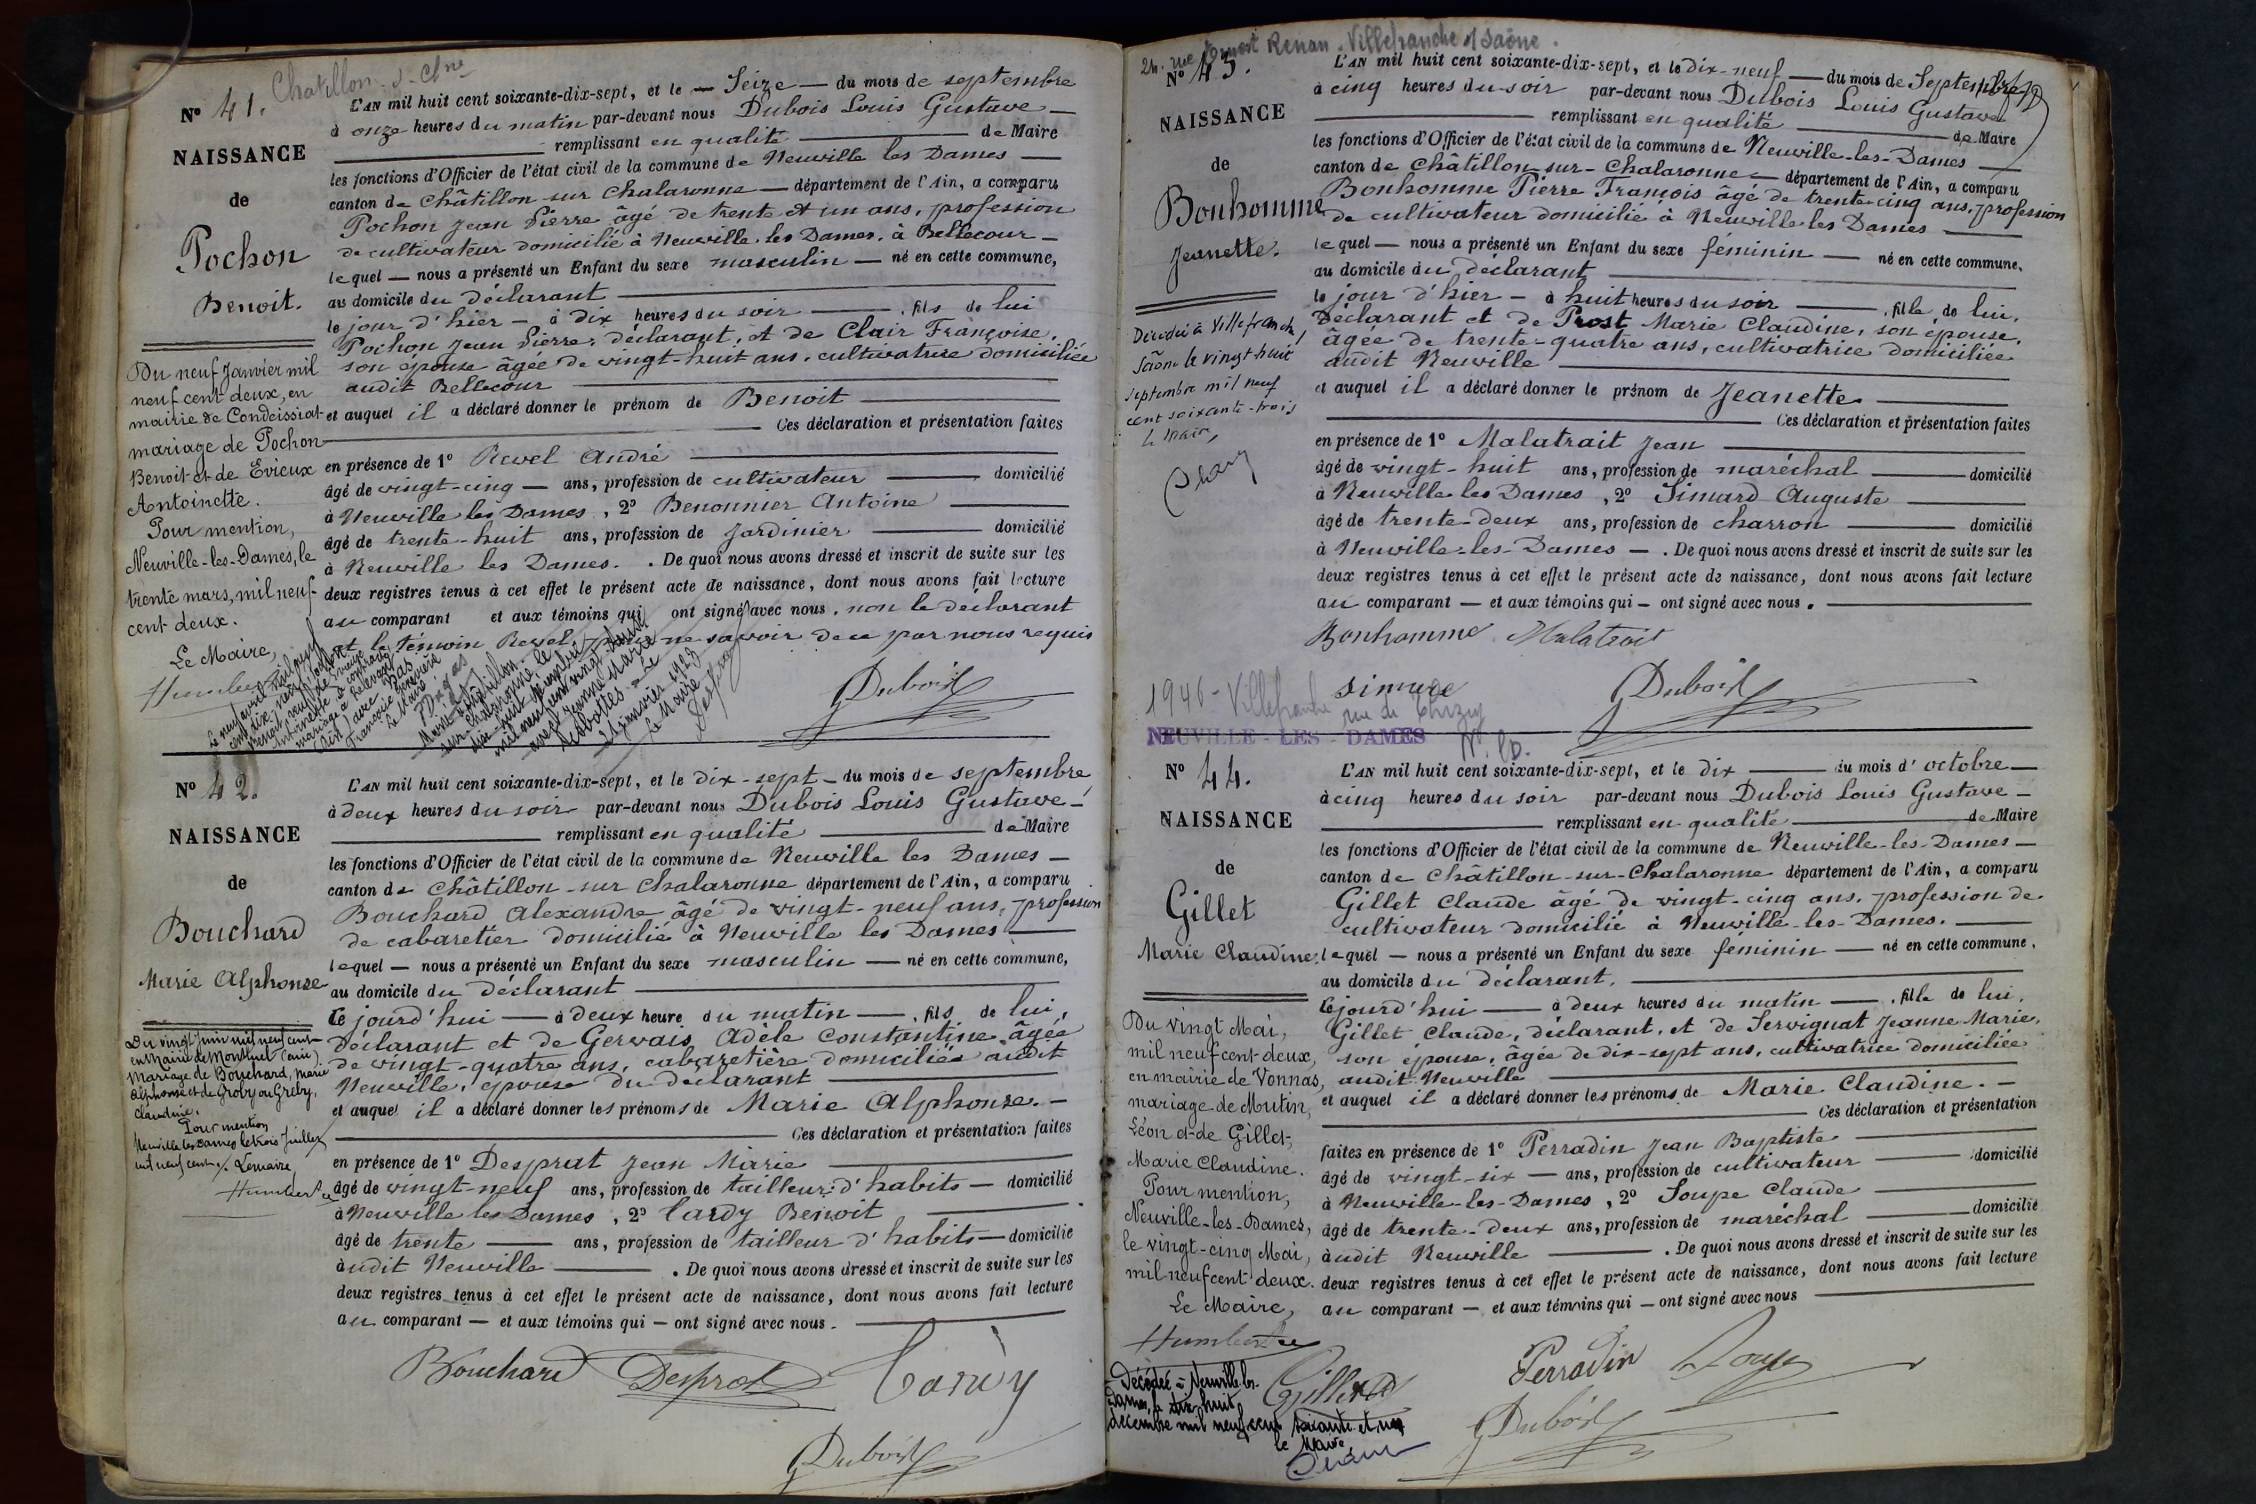 Chatillon s-Chne
Nº 41.
NAISSANCE
de
Pochon
Benoit.
Du neuf Janvier mil
neuf cent deux, en
mairie de Condeissiat
mariage de Pochon
Benoit et de Evieux
Antoinette.
Pour mention,
Neuville-les-Dames, le
trente mars, mil neuf-
cent deux.
Le Maire,
L'AN mil huit cent soixante-dix-sept, et le — Seize — du mois de septembre
à onze heures du matin par-devant nous Dubois Louis Gustave —
remplissant en qualité — de Maire
les fonctions d'Officier de l'état civil de la commune de Neuville les Dames —
canton de Châtillon sur Chalaronne — département de l'Ain, a comparu
Pochon Jean Pierre âgé de trente et un ans, profession
de cultivateur domicilié à Neuville les Dames, à Bellecour —
lequel — nous a présenté un Enfant du sexe masculin — né en cette commune,
au domicile du déclarant —
le jour d'hier — à dix heures du soir — , fils de lui
Pochon Jean Pierre, déclarant, et de Clair Françoise,
son épouse âgée de vingt-huit ans, cultivatrice domiciliée
audit Bellecour —
et auquel il a déclaré donner le prénom de Benoit —
Ces déclaration et présentation faites
en présence de 1º Revel André —
âgé de vingt-cinq — ans, profession de cultivateur — domicilié
à Neuville les Dames, 2º Benonnier Antoine —
âgé de trente-huit ans, profession de Jardinier — domicilié
à Neuville les Dames. . De quoi nous avons dressé et inscrit de suite sur les
deux registres tenus à cet effet le présent acte de naissance, dont nous avons fait lecture
au comparant et aux témoins qui ont signé avec nous, non le déclarant
et le témoin Revel, pour ne savoir de ce par nous requis
Dubois
Nº 42.
NAISSANCE
de
Bouchard
Marie Alphonse
Du vingt Juin mil neuf cent
en Mairie de Montluel (Ain)
Mariage de Bouchard, Marie
Alphonse et de Groby ou Greby,
Claudine.
Pour mention
Neuville les Dames le trois Juillet
mil neuf cent. Le maire,
L'AN mil huit cent soixante-dix-sept, et le dix-sept — du mois de septembre
à deux heures du soir par-devant nous Dubois Louis Gustave —
remplissant en qualité — de Maire
les fonctions d'Officier de l'état civil de la commune de Neuville les Dames —
canton de Châtillon-sur Chalaronne département de l'Ain, a comparu
Bouchard Alexandre âgé de vingt-neuf ans, profession
de cabaretier domicilié à Neuville les Dames —
lequel — nous a présenté un Enfant du sexe masculin — né en cette commune,
au domicile du déclarant —
Ce jourd'hui — à deux heure du matin — , fils de lui,
déclarant et de Gervais Adèle Constantine, âgée
de vingt-quatre ans, cabaretière domiciliée audit
Neuville, épouse du déclarant —
et auquel il a déclaré donner les prénoms de Marie Alphonse. —
Ces déclaration et présentation faites
en présence de 1º Desprat Jean Marie —
âgé de vingt-neuf ans, profession de tailleur d'habits — domicilié
à Neuville les Dames, 2º Cardy Benoit —
âgé de trente — ans, profession de tailleur d'habits — domicilié
audit Neuville — . De quoi nous avons dressé et inscrit de suite sur les
deux registres tenus à cet effet le présent acte de naissance, dont nous avons fait lecture
au comparant — et aux témoins qui — ont signé avec nous. —
Bouchard Desprat Cardy
Dubois
24. rue Ernest Renan. Villefranche s/ Saône.
Nº 43.
NAISSANCE
de
Bonhomme
Jeanette.
Décédée à Villefranche
Saône le vingt-huit
septembre mil neuf
cent soixante-trois
Le Maire,
L'AN mil huit cent soixante-dix-sept, et le dix-neuf — du mois de Septembre
à cinq heures du soir par-devant nous Dubois Louis Gustave
remplissant en qualité — de Maire
les fonctions d'Officier de l'état civil de la commune de Neuville-les-Dames —
canton de Châtillon-sur-Chalaronne — département de l'Ain, a comparu
Bonhomme Pierre François âgé de trente-cinq ans, profession
de cultivateur domicilié à Neuville les Dames —
lequel — nous a présenté un Enfant du sexe féminin — né en cette commune,
au domicile du déclarant —
le jour d'hier — à huit heures du soir — , fille de lui,
Déclarant et de Prost Marie Claudine, son épouse,
âgée de trente-quatre ans, cultivatrice domiciliée
audit Neuville —
et auquel il a déclaré donner le prénom de Jeanette —
Ces déclaration et présentation faites
en présence de 1º Malatrait Jean —
âgé de vingt-huit ans, profession de maréchal — domicilié
à Neuville les Dames, 2º Simard Auguste —
âgé de trente-deux ans, profession de charron — domicilié
à Neuville-les-Dames — . De quoi nous avons dressé et inscrit de suite sur les
deux registres tenus à cet effet le présent acte de naissance, dont nous avons fait lecture
au comparant — et aux témoins qui — ont signé avec nous. —
Bonhomme Malatrait
Dubois
1946 - Villefranche
NEUVILLE - LES - DAMES
Nº 44.
NAISSANCE
de
Gillet
Marie Claudine
Du vingt Mai,
mil neuf cent deux,
en mairie de Vonnas,
mariage de Mutin,
Léon et de Gillet,
Marie Claudine.
Pour mention,
Neuville-les-Dames,
le vingt-cinq Mai,
mil neuf cent deux.
Le Maire,
Décédée à Neuville les
Dames, le dix huit
décembre mil neuf cent soixante et un
le Maire
L'AN mil huit cent soixante-dix-sept, et le dix — du mois d'octobre —
à cinq heures du soir par-devant nous Dubois Louis Gustave —
remplissant en qualité — de Maire
les fonctions d'Officier de l'état civil de la commune de Neuville-les-Dames —
canton de Châtillon-sur-Chalaronne département de l'Ain, a comparu
Gillet Claude âgé de vingt-cinq ans, profession de
cultivateur domicilié à Neuville-les-Dames. —
lequel — nous a présenté un Enfant du sexe féminin — né en cette commune,
au domicile du déclarant, —
Ce jourd'hui — à deux heures du matin — , fille de lui,
Gillet Claude, déclarant, et de Servignat Jeanne Marie,
son épouse, âgée de dix-sept ans, cultivatrice domiciliée
audit Neuville —
et auquel il a déclaré donner les prénoms de Marie Claudine. —
Ces déclaration et présentation
faites en présence de 1º Perradin Jean Baptiste —
âgé de vingt-six — ans, profession de cultivateur — domicilié
à Neuville-les-Dames, 2º Soupe Claude —
âgé de trente-deux ans, profession de maréchal — domicilié
audit Neuville — . De quoi nous avons dressé et inscrit de suite sur les
deux registres tenus à cet effet le présent acte de naissance, dont nous avons fait lecture
au comparant — et aux témoins qui — ont signé avec nous —
Gillet Perradin Soupe
Dubois